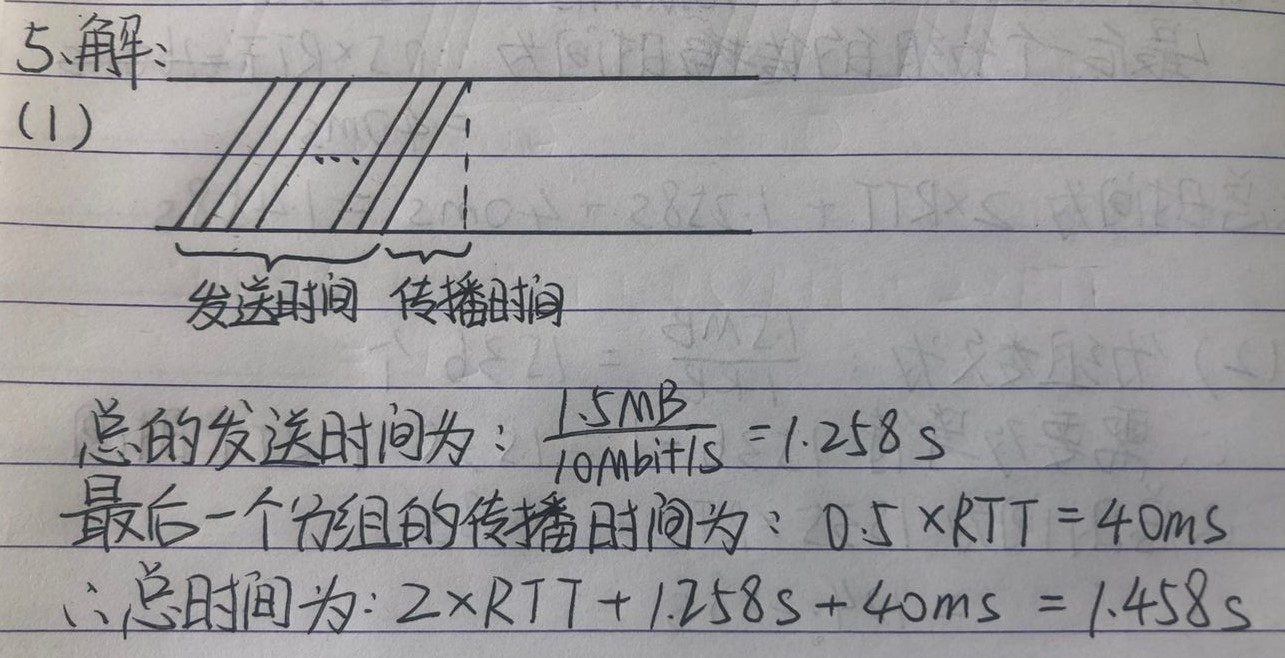 5、解:
(1)
...
发送时间 传播时间
总的发送时间为: 1.5MB/10Mbit/s = 1.258s
最后一个分组的传播时间为: 0.5×RTT = 40ms
∴总时间为: 2×RTT + 1.258s + 40ms = 1.458s